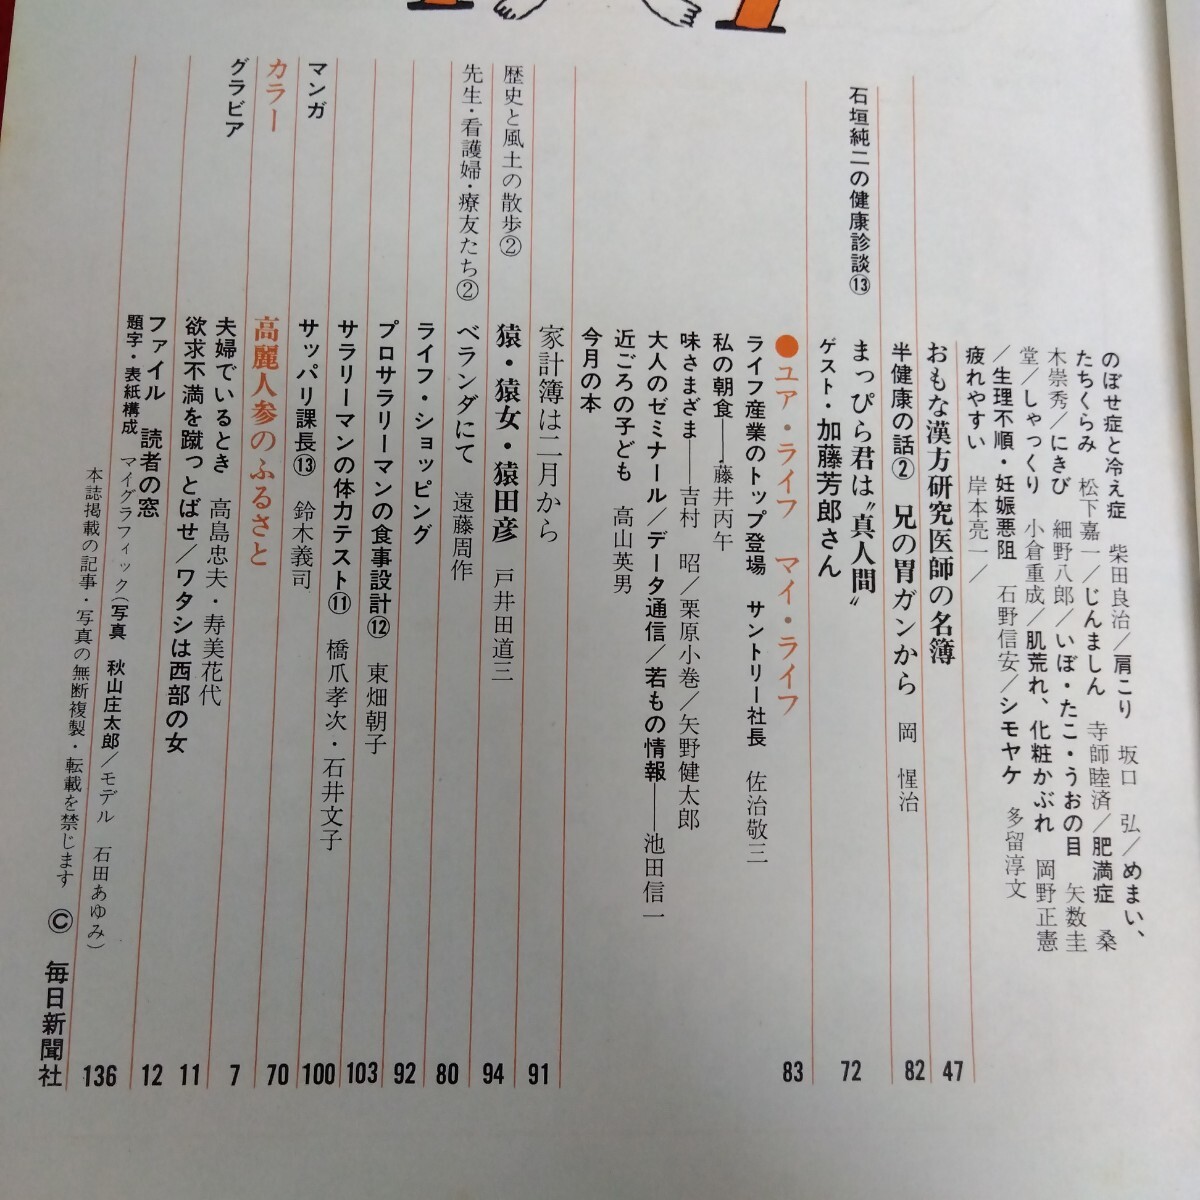 のぼせ症と冷え症　柴田良治／肩こり　坂口　弘／めまい、
たちくらみ　松下嘉一／じんましん　寺師睦済／肥満症　桑
木崇秀／にきび　細野八郎／いぼ・たこ・うおの目　矢数圭
堂／しゃっくり　小倉重成／肌荒れ、化粧かぶれ　岡野正憲
／生理不順・妊娠悪阻　石野信安／シモヤケ　多留淳文
疲れやすい　岸本亮一／
おもな漢方研究医師の名簿 47
半健康の話② 兄の胃ガンから　岡　惺治 82
石垣純二の健康診談⑬ まっぴら君は〝真人間〟 72
ゲスト・加藤芳郎さん
●ユア・ライフ　マイ・ライフ 83
ライフ産業のトップ登場　サントリー社長　佐治敬三
私の朝食──藤井丙午
味さまざま──吉村　昭／栗原小巻／矢野健太郎
大人のゼミナール／データ通信／若もの情報──池田信一
近ごろの子ども　高山英男
今月の本
家計簿は二月から 91
歴史と風土の散歩② 猿・猿女・猿田彦　戸井田道三 94
先生・看護婦・療友たち② ベランダにて　遠藤周作 80
ライフ・ショッピング 92
プロサラリーマンの食事設計⑫　東畑朝子 103
サラリーマンの体力テスト⑪　橋爪孝次・石井文子 100
マンガ サッパリ課長⑬　鈴木義司 70
カラー 高麗人参のふるさと 7
グラビア 夫婦でいるとき　高島忠夫・寿美花代 11
欲求不満を蹴っとばせ／ワタシは西部の女 12
ファイル　読者の窓 136
題字・表紙構成　マイグラフィック（写真　秋山庄太郎／モデル　石田あゆみ）
本誌掲載の記事・写真の無断複製・転載を禁じます　Ⓒ　毎日新聞社